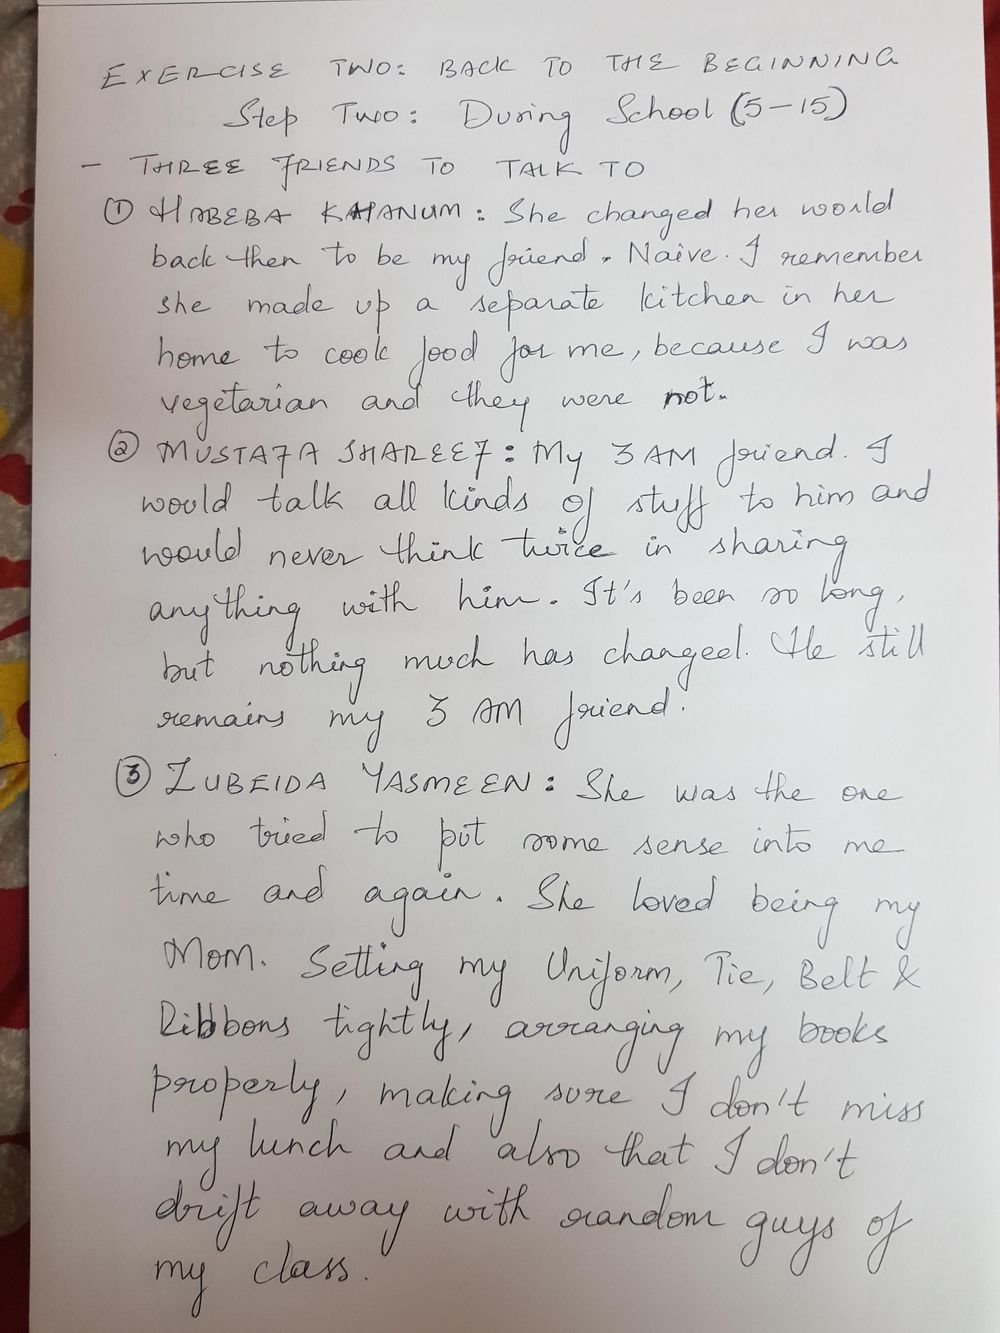 EXERCISE TWO: BACK TO THE BEGINNING
Step Two: During School (5-15)
- THREE FRIENDS TO TALK TO
① HABEBA KHANUM: She changed her world
back then to be my friend. Naive. I remember
she made up a separate kitchen in her
home to cook food for me, because I was
vegetarian and they were not.
② MUSTAFA SHAREEF: My 3 AM friend. I
would talk all kinds of stuff to him and
would never think twice in sharing
anything with him. It's been so long,
but nothing much has changed. He still
remains my 3 AM friend.
③ ZUBEIDA YASMEEN: She was the one
who tried to put some sense into me
time and again. She loved being my
Mom. Setting my Uniform, Tie, Belt &
Ribbons tightly, arranging my books
properly, making sure I don't miss
my lunch and also that I don't
drift away with random guys of
my class.